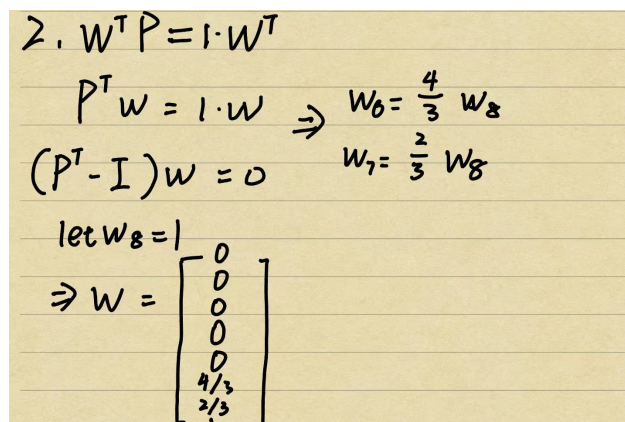 2. W^T P = 1·W^T
P^T w = 1·w ⇒ W6 = 4/3 W8
W7 = 2/3 W8
(P^T - I)w = 0
let W8 = 1
⇒ W = [0
0
0
0
0
4/3
2/3